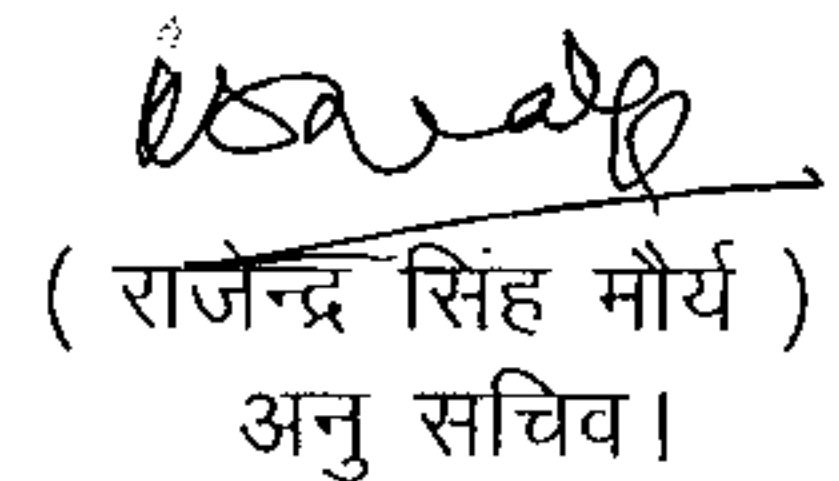 ( राजेन्द्र सिंह मौर्य )
अनु सचिव।